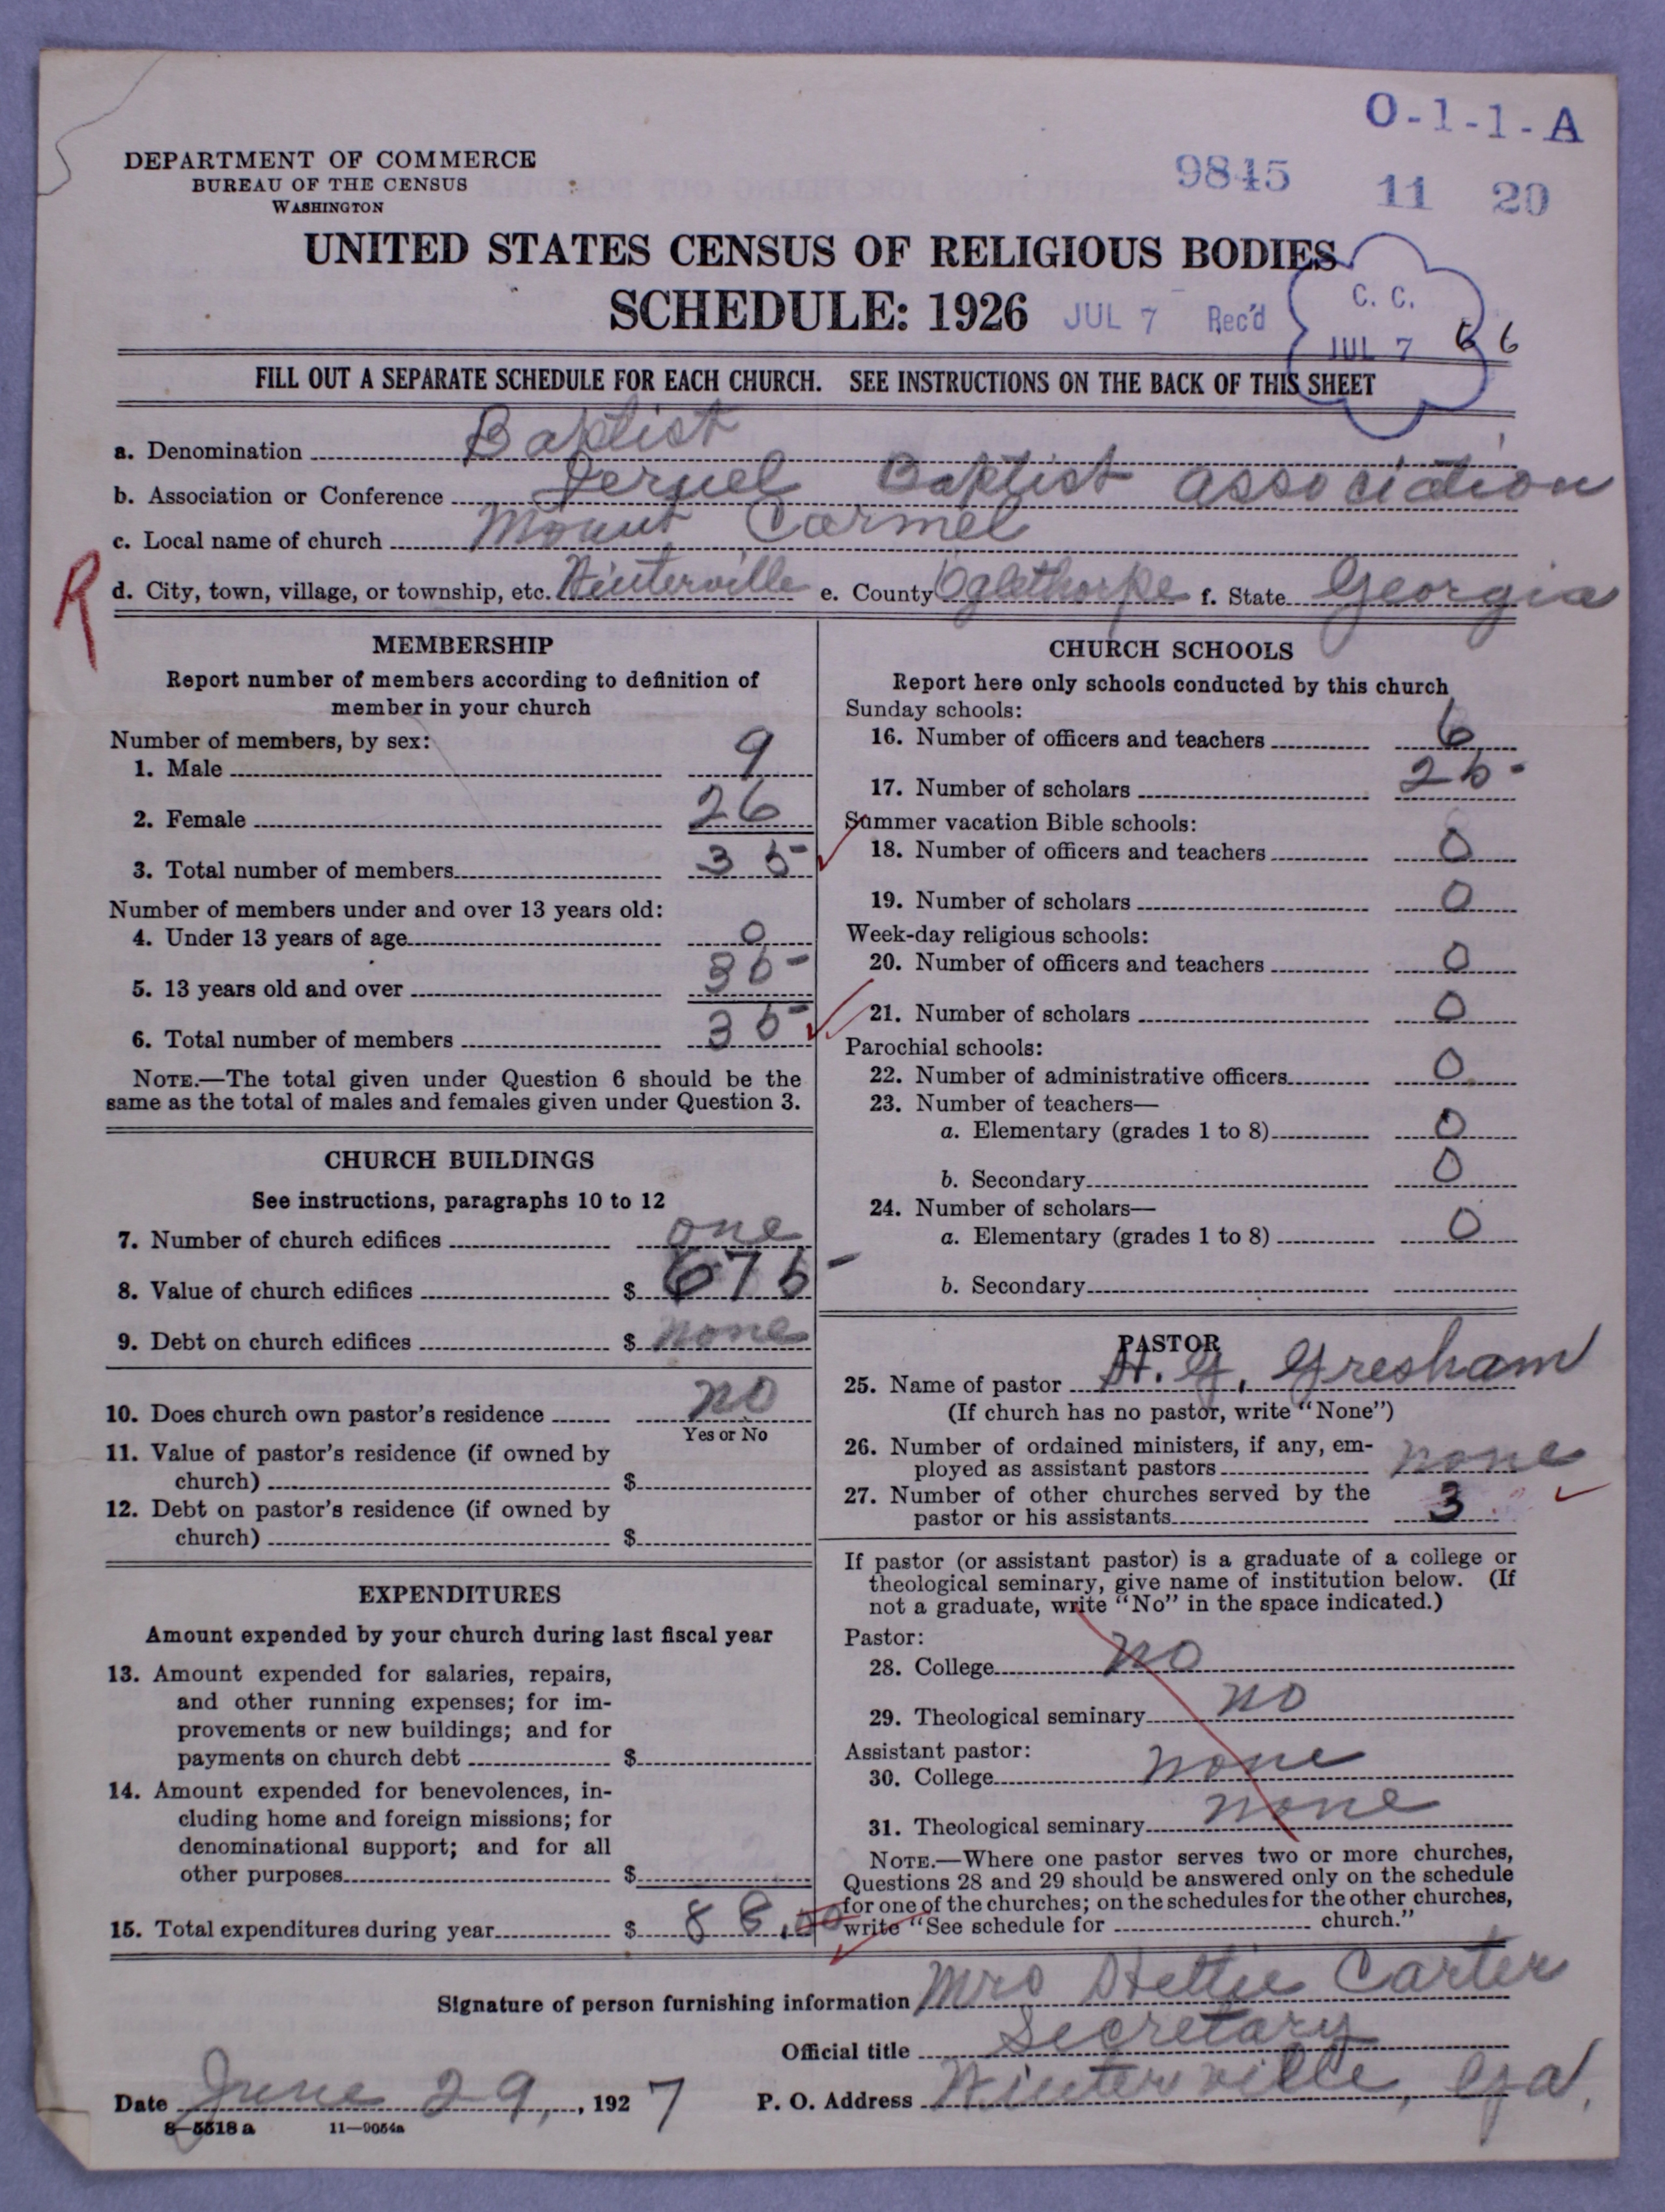 O-1-1-A
DEPARTMENT OF COMMERCE
BUREAU OF THE CENSUS
WASHINGTON
9845 11 20
UNITED STATES CENSUS OF RELIGIOUS BODIES
SCHEDULE: 1926
JUL 7 Rec'd
C. C.
JUL 7
6 6
FILL OUT A SEPARATE SCHEDULE FOR EACH CHURCH. SEE INSTRUCTIONS ON THE BACK OF THIS SHEET
a. Denomination Baptist
b. Association or Conference Baptist association
c. Local name of church Mount Carmel
R
d. City, town, village, or township, etc. Winterville e. County Oglethorpe f. State Georgia
MEMBERSHIP
Report number of members according to definition of
member in your church
Number of members, by sex:
1. Male 9
2. Female 26
3. Total number of members 35
Number of members under and over 13 years old:
4. Under 13 years of age 0
5. 13 years old and over 35
6. Total number of members 35
NOTE.—The total given under Question 6 should be the
same as the total of males and females given under Question 3.
CHURCH BUILDINGS
See instructions, paragraphs 10 to 12
7. Number of church edifices one
8. Value of church edifices $ 675
9. Debt on church edifices $ none
10. Does church own pastor's residence no
Yes or No
11. Value of pastor's residence (if owned by
church) $
12. Debt on pastor's residence (if owned by
church) $
EXPENDITURES
Amount expended by your church during last fiscal year
13. Amount expended for salaries, repairs,
and other running expenses; for im-
provements or new buildings; and for
payments on church debt $
14. Amount expended for benevolences, in-
cluding home and foreign missions; for
denominational support; and for all
other purposes $
15. Total expenditures during year $ 88.00
CHURCH SCHOOLS
Report here only schools conducted by this church
Sunday schools:
16. Number of officers and teachers 6
17. Number of scholars 25
Summer vacation Bible schools:
18. Number of officers and teachers 0
19. Number of scholars 0
Week-day religious schools:
20. Number of officers and teachers 0
21. Number of scholars 0
Parochial schools:
22. Number of administrative officers 0
23. Number of teachers—
a. Elementary (grades 1 to 8) 0
b. Secondary 0
24. Number of scholars—
a. Elementary (grades 1 to 8) 0
b. Secondary
PASTOR
25. Name of pastor H. G. Gresham
(If church has no pastor, write "None")
26. Number of ordained ministers, if any, em-
ployed as assistant pastors none
27. Number of other churches served by the
pastor or his assistants 3
If pastor (or assistant pastor) is a graduate of a college or
theological seminary, give name of institution below. (If
not a graduate, write "No" in the space indicated.)
Pastor:
28. College no
29. Theological seminary no
Assistant pastor:
30. College none
31. Theological seminary none
NOTE.—Where one pastor serves two or more churches,
Questions 28 and 29 should be answered only on the schedule
for one of the churches; on the schedules for the other churches,
write "See schedule for church."
Signature of person furnishing information Mrs Hettie Carter
Official title Secretary
Date June 29, 1927 P. O. Address Winterville, Ga.
8—5518 a 11—9054a